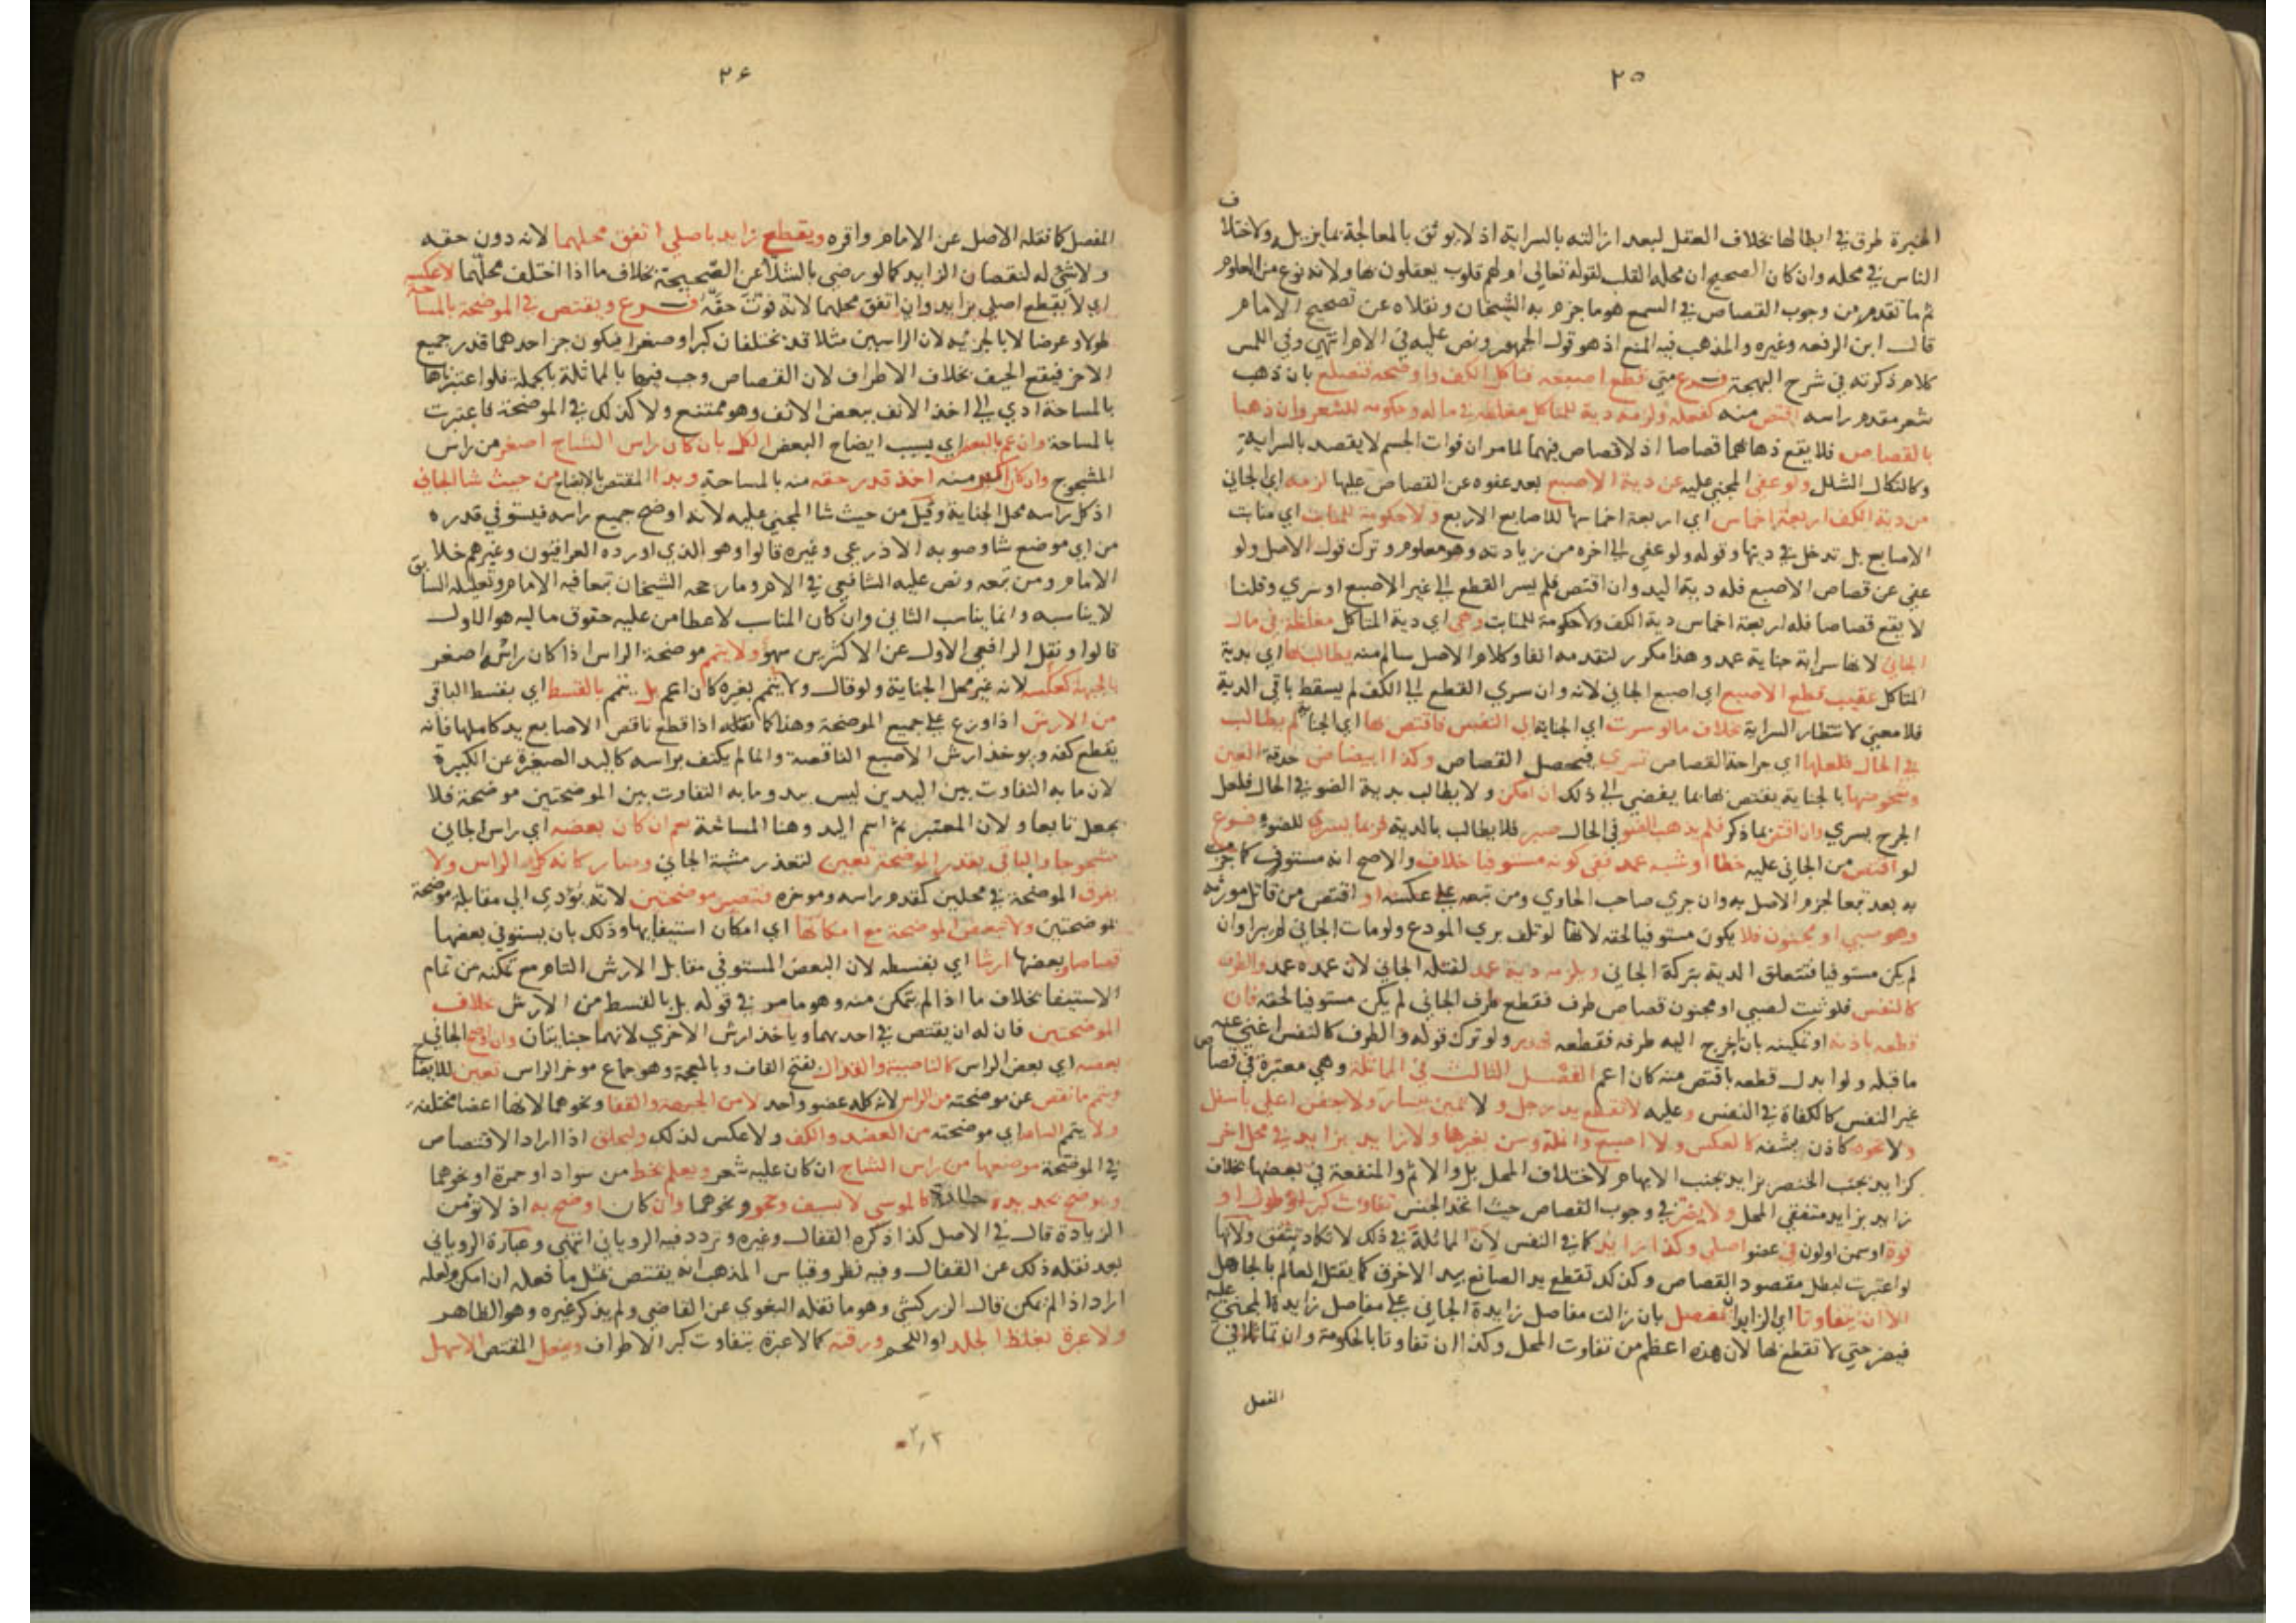 ٢٥
الخبرة طرق في ابطالها بخلاف العقل لبعد ازالته بالسراية اذ لا يوثق بالمعالجة بما يزيله ولاختلاف
الناس في محله وان كان الصحيح ان محله القلب لقوله تعالي او لهم قلوب يعقلون بها ولانه نوع من العلوم
ثم ما تقدم من وجوب القصاص في السمع هو ما جزم به الشيخان ونقلاه عن تصحيح الامام
قال ابن الرفعه وغيره والمذهب فيه المنع اذ هو قول الجمهور ونص عليه في الام انتهي وفي اللمس
كلام ذكرته في شرح البهجة فرع متي قطع اصبعه فتاكل الكف واوضحه فتصلع بان ذهب
شعر مقدم راسه اقتص منه كفعله ولزمه دية للمتاكل مغلظه في ماله وحكومه للشعر وان ذهبا
بالقصاص فلا يقع ذهابهما قصاصا اذ لا قصاص فيهما لما مر ان فوات الجسم لا يقصد بالسراية
وكالتكال الشلل ولو عفي المجني عليه عن دية الاصبع بعد عفوه عن القصاص عليها لزمه اي الجاني
من دية الكف اربعة اخماس اي اربعة اخماسها للاصابع الاربع ولا حكومة للمنابت اي منابت
الاصابع بل تدخل في ديتها وقوله ولو عفي الي اخره من زيادته وهو معلوم وترك قول الاصل ولو
عفي عن قصاص الاصبع فله دية اليد وان اقتص فلم يسر القطع الي غير الاصبع او سري وقلنا
لا يقع قصاصا فله اربعة اخماس دية الكف ولا حكومة للمنابت وهي اي دية المتاكل مغلظة في مال
الجاني لانها سراية جناية عمد وهذا مكرر لتقدمه انفا وكلام الاصل سالم منه يطالب بها اي بدية
المتاكل عقيب قطع الاصبع اي اصبع الجاني لانه وان سري القطع الي الكف لم يسقط باقي الدية
فلا معني لانتظار السراية بخلاف ما لو سرت اي الجناية الي النفس فاقتص بها اي الجناية لم يطالب
في الحال فلعلها اي جراحة القصاص تسري فيحصل القصاص وكذا ابيضاض حدقة العين
وشخوصها بالجناية يقتص بها بما يفضي الي ذلك ان امكن ولا يطالب بدية الضو في الحال فلعل
الجرح يسري وان اقتص بما ذكر فلم يذهب الضو في الحال صبر فلا يطالب بالدية فربما يسري للضو فرع
لو اقتص من الجاني عليه خطا او شبه عمد ففي كونه مستوفيا خلاف والاصح انه مستوف كما جزم
به بعد تبعا لجزم الاصل به وان جري صاحب الحاوي ومن تبعه علي عكسه او اقتص من قاتل مورثه
وهو صبي او مجنون فلا يكون مستوفيا لحقه لانها لو تلف بري المودع ولو مات الجاني لم يبرا وان
لم يكن مستوفيا فتتعلق الدية بتركة الجاني ويلزمه دية عمد لقتله الجاني لان عمده عمد والطرف
كالنفس فلو ثبت لصبي او مجنون قصاص طرف فقطع طرف الجاني لم يكن مستوفيا لحقه فان
قطعه باذنه او تمكينه بان اخرج اليه طرفه فقطعه فهدر ولو ترك قوله والطرف كالنفس اغني عنه
ما قبله ولو ابدل قطعه باقتص منه كان اعم الفصل الثالث في المماثلة وهي معتبرة في قصاص
غير النفس كالكفاة في النفس وعليه لا تقطع يد برجل ولا يمين بيسار ولا جفن اعلي باسفل
ولا نحوه كاذن بشفه كالعكس ولا اصبع وانملة وسن بغيرها ولا زايد بزايد في محل اخر
كزايد بجنب الخنصر بزايد بجنب الابهام لاختلاف المحل بل والاثم والمنفعة في بعضها بخلاف
زايد بزايد متفقي المحل ولا يضر في وجوب القصاص حيث اتحد الجنس تفاوت كبر وطول او
قوة او سمن او لون في عضو اصلي وكذا زايد كما في النفس لان المماثلة في ذلك لا تكاد تتفق ولانها
لو اعتبرت لبطل مقصود القصاص وكذلك تقطع يد الصانع بيد الاخرق كما يقتل العالم بالجاهل
الا ان تفاوتا اي الزايدان بمفصل بان زالت مفاصل زايدة الجاني علي مفاصل زايدة المجني عليه
فيضر حتي لا تقطع بها لان هذه اعظم من تفاوت المحل وكذا ان تفاوتا بالحكومة وان تماثلا في
المفصل
٢٦
المفصل كما نقله الاصل عن الامام واقره ويقطع زايد باصلي اتفق محلهما لانه دون حقه
ولا شي له لنقصان الزايد كما لو رضي بالشلا عن الصحيحة بخلاف ما اذا اختلف محلهما لا عكسه
اي لا يقطع اصلي بزايد وان اتفق محلهما لانه فوق حقه فرع ويقتص في الموضحة بالمساحة
طولا وعرضا لا بالجزئيه لان الراسين مثلا قد يختلفان كبرا وصغرا فيكون جز احدهما قدر جميع
الاخر فيقع الحيف بخلاف الاطراف لان القصاص وجب فيها بالمماثلة بالجملة فلو اعتبرناها
بالمساحة ادي الي اخذ الانف ببعض الانف وهو ممتنع ولا كذلك في الموضحة فاعتبرت
بالمساحة وان عم بالبعض اي بسبب ايضاح البعض الكل بان كان راس الشاج اصغر من راس
المشجوج وان كان اكبر منه اخذ قدر حقه منه بالمساحة ويبدا المقتص بالايضاح من حيث شا الجاني
اذ كل راسه محل الجناية وقيل من حيث شا المجني عليه لانه اوضح جميع راسه فيستوفي قدره
من اي موضع شا وصوبه الاذرعي وغيره قالوا وهو الذي اورده العراقيون وغيرهم خلاف
الامام ومن تبعه ونص عليه الشافعي في الام وما رجحه الشيخان تبعا فيه الامام وتعليله السابق
لا يناسبه وانما يناسب الثاني وان كان المناسب لاعطا من عليه حقوق ماليه هو الاول
قالوا ونقل الرافعي الاول عن الاكثرين سهو ولا يتمم موضحة الراس اذا كان راسه اصغر
بالجبهة كعكسه لانه غير محل الجناية ولو قال ولا يتمم بغيره كان اعم بل يتمم بالقسط اي بقسط الباقي
من الارش اذا وزع علي جميع الموضحة وهذا كما نقله اذا قطع ناقص الاصابع يد كاملها فانه
يقطع كفه ويوخذ ارش الاصبع الناقصة وانما لم يكتف براسه كاليد الصغيرة عن الكبيرة
لان ما به التفاوت بين اليدين ليس بيد وما به التفاوت بين الموضحتين موضحة فلا
يجعل تابعا ولان المعتبر ثم اسم اليد وهنا المساحة نعم ان كان بعضه اي راس الجاني
مشجوجا والباقي بقدر الموضحة تعين لتعذر مشية الجاني وصار كانه كل الراس ولا
يفرق الموضحة في محلين كمقدم راسه وموخره فتصير موضحتين لانه يؤدي الي مقابلة موضحة
بموضحتين ولا تبعض الموضحة مع امكانها اي امكان استيفايها وذلك بان يستوفي بعضها
قصاصا وبعضها ارشا اي بقسطه لان البعض المستوفي مقابل الارش التام مع تمكنه من تمام
الاستيفا بخلاف ما اذا لم يتمكن منه وهو ما مر في قوله بل بالقسط من الارش بخلاف
الموضحتين فان له ان يقتص في احديهما وياخذ ارش الاخري لانهما جنايتان وان اوضح الجاني
بعضه اي بعض الراس كالناصية والقذال بفتح القاف وبالمعجمة وهو جماع موخر الراس تعين للايضاح
ويتمم ما نقص عن موضحته من الراس لانه كله عضو واحد لا من الجبهة والقفا ونحوهما لانها اعضا مختلفه
ولا يتمم الساعد اي موضحته من العضد والكف ولا عكس لذلك وليحلق اذا اراد الاقتصاص
في الموضحة موضعها من راس الشاج ان كان عليه شعر ويعلم بخط من سواد او حمرة او نحوهما
ويوضح بحديدة حادة كالموسي لا بسيف وحجر ونحوهما وان كان اوضح به اذ لا تؤمن
الزيادة قال في الاصل كذا ذكره القفال وغيره وتردد فيه الروياني انتهي وعبارة الروياني
بعد نقله ذلك عن القفال وفيه نظر وقياس المذهب انه يقتص بمثل ما فعله ان امكن ولعله
اراد اذا لم يمكن قال الزركشي وهو ما نقله البغوي عن القاضي ولم يذكر غيره وهو الظاهر
ولا عبرة بغلظ الجلد او اللحم ورقته كما لا عبرة بتفاوت كبر الاطراف ويفعل المقتص الاسهل